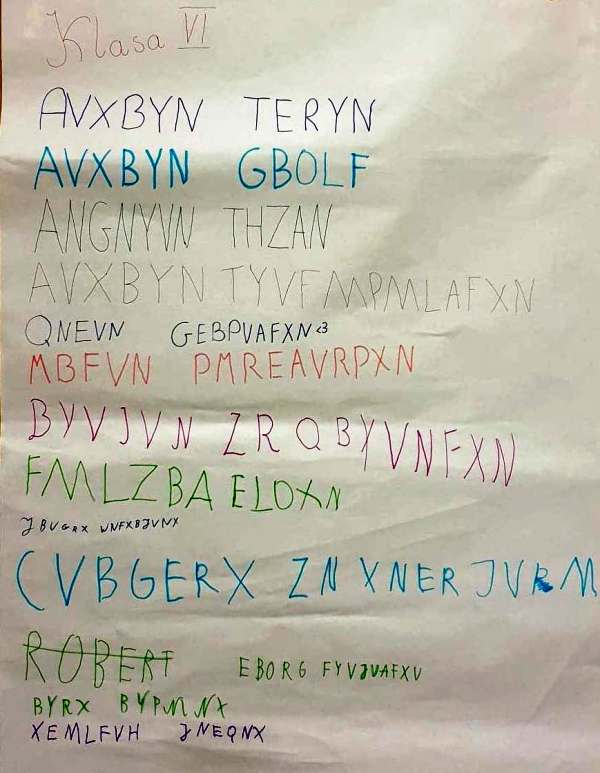 Klasa VI
AVXBYN TERYN
AVXBYN GBOLF
ANGNYVN THZAN
AVXBYN TYVFMPMLAFXN
QNEVN GEBPVAFXN <3
MBFVN PMREAVRPXN
BYVJVN ZR QBYVNFXN
FMLZBA ELOXN
JBVGRX WNFXBJVNX
CVBGERX ZN XNER JVRM
ROBERT EBORG FYVJVAFXV
BYRX BYPMNX
XEMLFVH JNEQNX